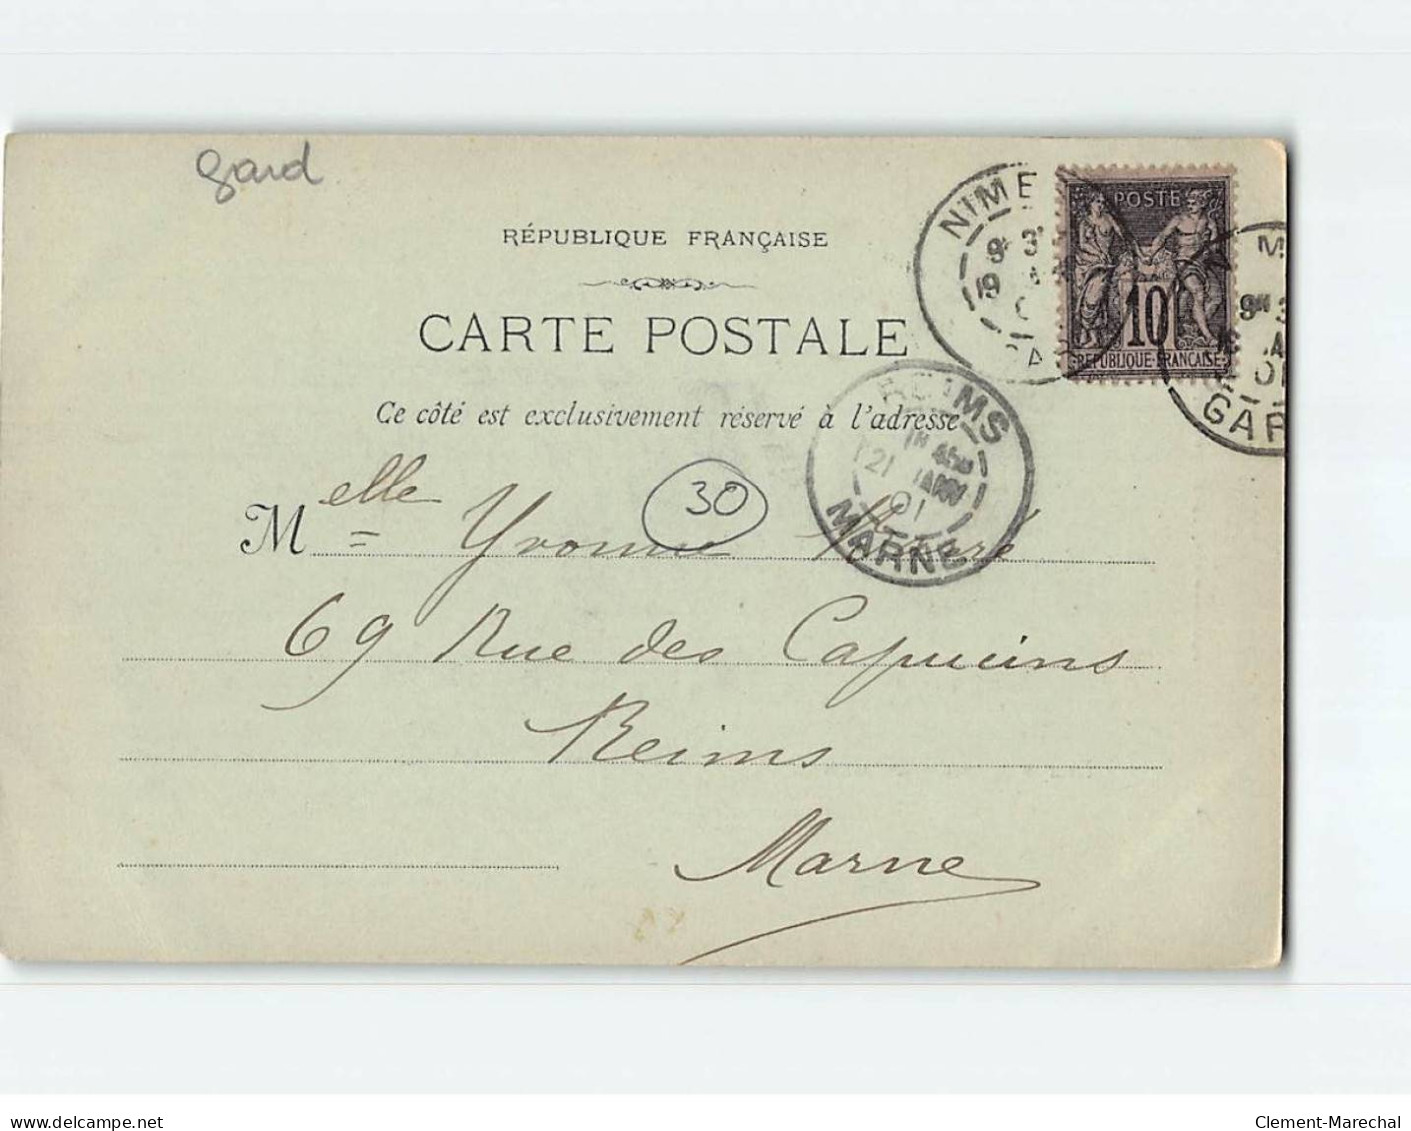 gard
RÉPUBLIQUE FRANÇAISE
CARTE POSTALE
Ce côté est exclusivement réservé à l'adresse
POSTE
10
REPUBLIQUE FRANCAISE
NIME
19
GARD
REIMS
21 JANV
01
MARNE
30
Melle Yvonne
69 Rue des Capucins
Reims
Marne
www.delcampe.net
Clement-Marechal